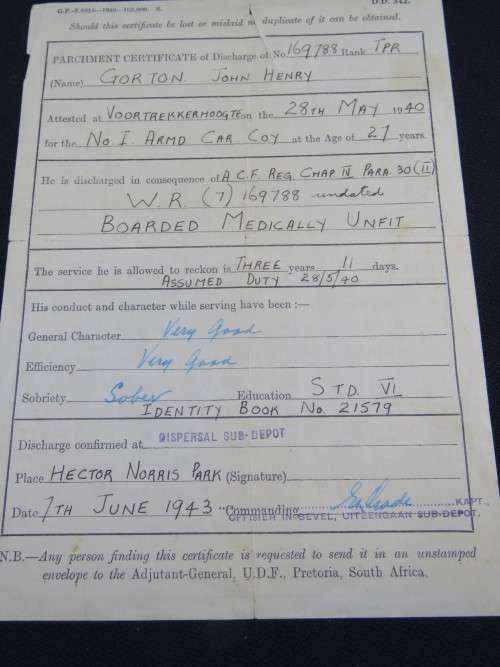 G.P.-S.6854—1940—102,000. S. D.D. 342.
Should this certificate be lost or mislaid no duplicate of it can be obtained.
PARCHMENT CERTIFICATE of Discharge of No 169788 Rank TPR
(Name) GORTON JOHN HENRY
Attested at VOORTREKKERHOOGTE on the 28TH MAY 1940
for the No. I. ARMD CAR COY at the Age of 27 years.
He is discharged in consequence of A.C.F. REG. CHAP IV PARA. 30 (II)
W.R. (7) 169788 undated
BOARDED MEDICALLY UNFIT
The service he is allowed to reckon is THREE years 11 days.
ASSUMED DUTY 28/5/40
His conduct and character while serving have been :—
General Character Very Good
Efficiency Very Good
Sobriety Sober Education STD. VI
IDENTITY BOOK No. 21579
Discharge confirmed at DISPERSAL SUB-DEPOT
Place HECTOR NORRIS PARK (Signature)
Date 7TH JUNE 1943 Commanding KAPT.,
OFFISIER IN BEVEL, UITEENGAAN SUB-DEPOT.
N.B.—Any person finding this certificate is requested to send it in an unstamped
envelope to the Adjutant-General, U.D.F., Pretoria, South Africa,